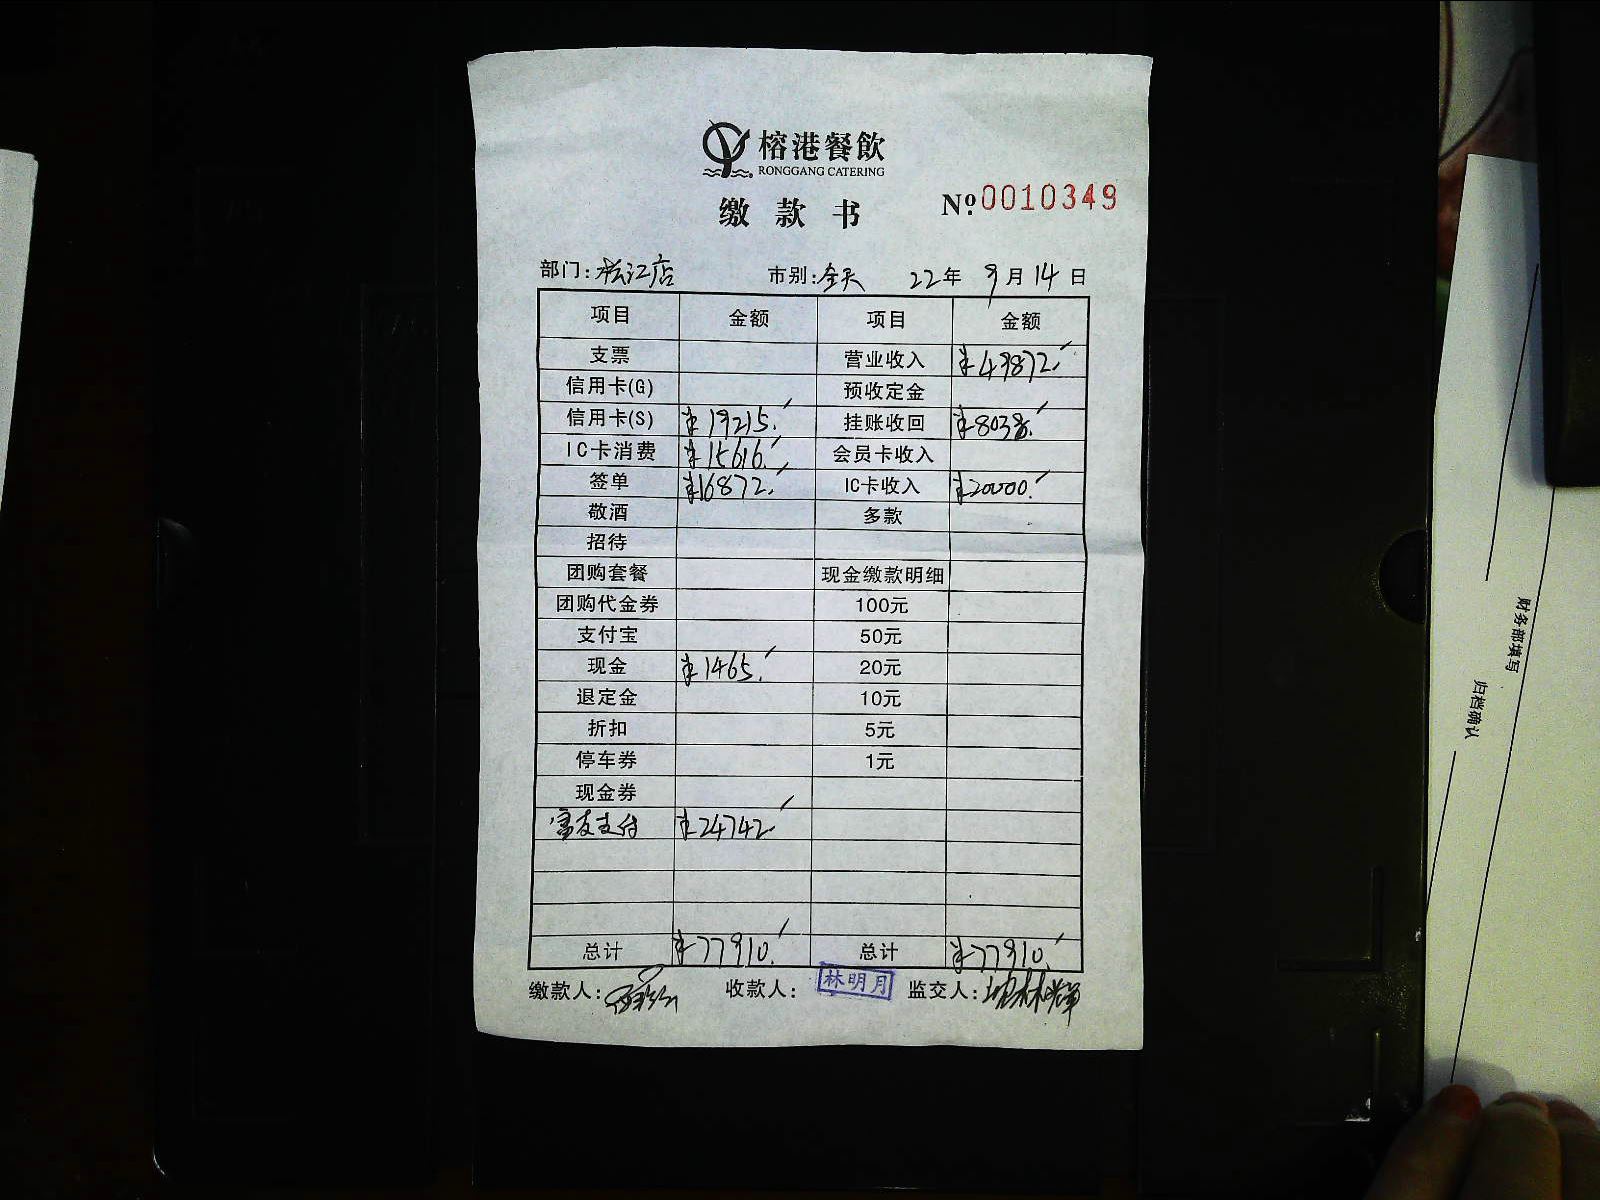 榕港餐飲
RONGGANG CATERING
缴款书
Nº.0010349
部门:松江店 市别:全天 22年 9月14日
项目 金额 项目 金额
支票 营业收入 ¥49872.
信用卡(G) 预收定金
信用卡(S) ¥19215. 挂账收回 ¥8038.
IC卡消费 ¥15616. 会员卡收入
签单 ¥16872. IC卡收入 ¥20000.
敬酒 多款
招待
团购套餐 现金缴款明细
团购代金券 100元
支付宝 50元
现金 ¥1465. 20元
退定金 10元
折扣 5元
停车券 1元
现金券
富友支付 ¥24742.
总计 ¥77910. 总计 ¥77910.
缴款人: 收款人: 林明月 监交人:
财务部填写
归档确认